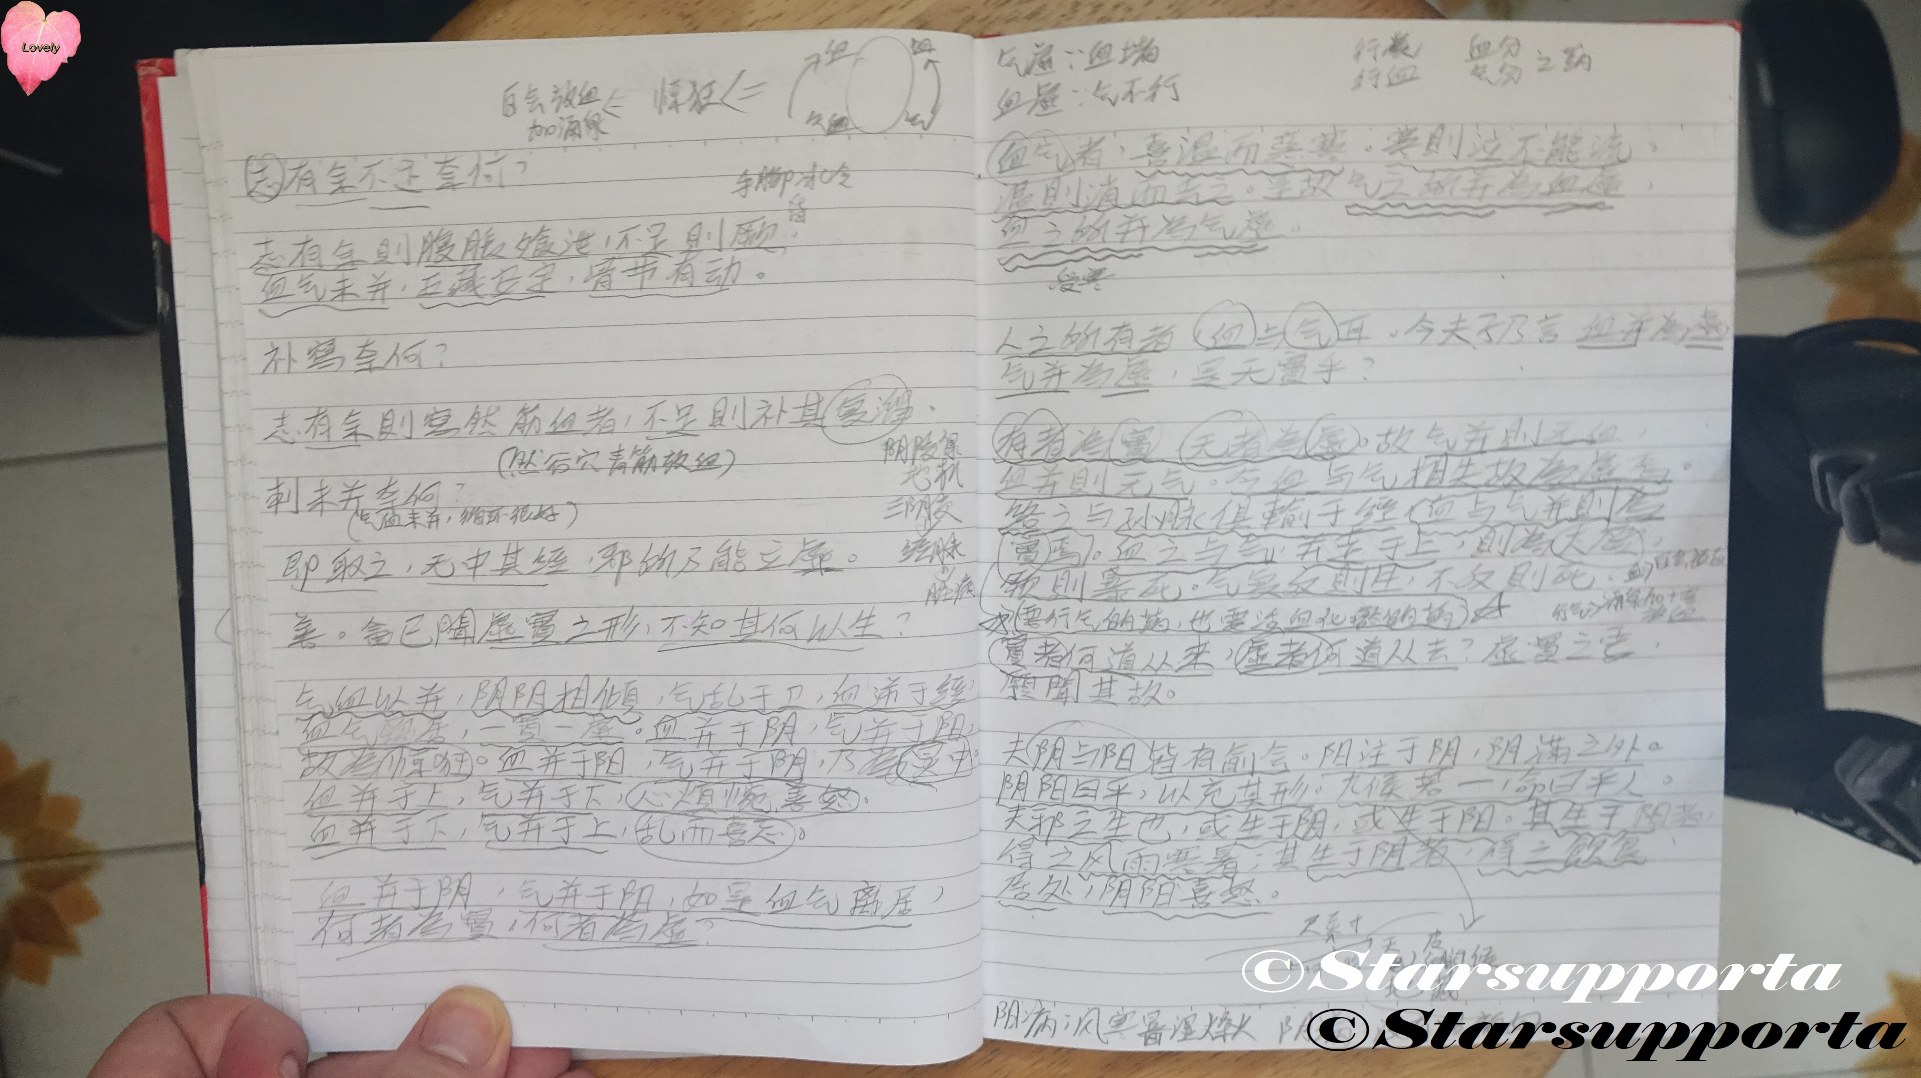 Lovely
百会放血 ⇐ 惊狂 ⇐ 血 血
加涌泉 气血 气
志有余不足奈何？
手脚冰冷
志有余则腹胀飧泄，不足则厥，
血气未并，五藏安定，骨节有动。
补寫奈何？
志有余則寫然筋血者，不足則补其复溜。
(然后穴青筋放血)
阴陵泉
地机
刺未并奈何？
(气血未并，循环很好)
三阴交
即取之，无中其经，邪所乃能立虚。
善。余已聞虚實之形，不知其何以生？
气血以并，阴阳相傾，气乱于卫，血逆于经，
血气离居，一實一虚。血并于阴，气并于阳，
故為惊狂。血并于阳，气并于阴，乃為炅中。
血并于上，气并于下，心烦惋善怒。
血并于下，气并于上，乱而喜忘。
血并于阴，气并于阳，如是血气离居，
何者為實，何者為虚？
气虚：血堵
血虚：气不行
行气 血分 之药
行血 气分
血气者，喜温而惡寒。寒則泣不能流，
温則消而去之。是故气之所并為血虚，
血之所并為气虚。
受寒
人之所有者，血与气耳。今夫子乃言血并為虚，
气并為虚，是无實乎？
有者為實，无者為虚。故气并則无血，
血并則无气。今血与气相失故為虚焉。
络之与孙脉俱輸于经，血与气并則為
實焉。血之与气，并走于上，則為大厥，
厥則暴死。气复反則生，不反則死。
(要行气的药，也要活血化瘀的药)
實者何道从来，虚者何道从去？虚實之要，
願聞其故。
夫阴与阳皆有俞会。阳注于阴，阴滿之外。
阴阳匀平，以充其形。九候若一，命曰平人。
夫邪之生也，或生于阴，或生于阳。其生于阳者，
得之风雨寒暑；其生于阴者，得之飲食
居处，阴阳喜怒。
©Starsupporta
阳病：风寒暑湿燥火
©Starsupporta